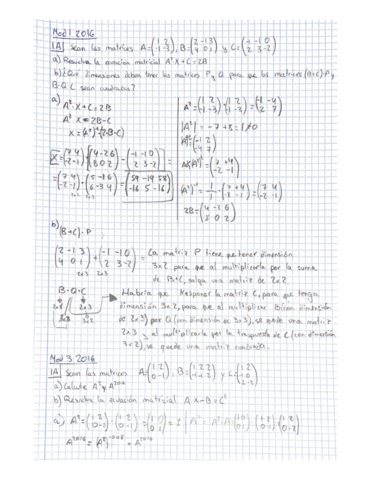 Mod 1 2016
1A) Sean las matrices A=(1 2 / -1 -3), B=(2 -1 3 / 4 0 1) y C=(-1 -1 0 / 2 3 -2)
a) Resuelva la ecuación matricial A²·X+C=2B
b) ¿Qué dimensiones deben tener las matrices P y Q para que las matrices (B+C)·P y
B·Q·C sean cuadradas?
a)
A²·X+C=2B
A²·X=2B-C
X=(A²)⁻¹(2·B-C)
A²=(1 2 / -1 -3)·(1 2 / -1 -3)=(-1 -4 / 2 7)
|A²|=-7+8=1≠0
(A²)⁻¹=1/1·(7 4 / -2 -1)=(7 4 / -2 -1)
2B=(4 -2 6 / 8 0 2)
X=(7 4 / -2 -1)·[(4 -2 6 / 8 0 2)-(-1 -1 0 / 2 3 -2)]=
=(7 4 / -2 -1)·(5 -1 6 / 6 -3 4)=(59 -19 58 / -16 5 -16)
b)
(B+C)·P
(2 -1 3 / 4 0 1)+(-1 -1 0 / 2 3 -2)
2x3 2x3
La matriz P tiene que tener dimensión
3x2 para que al multiplicarla por la suma
de B+C, salga una matriz de 2x2
B·Q·C
2x3 2x3
3x3 3x2
Habría que trasponer la matriz C, para que tenga
dimensión 3x2, para que al multiplicar B (con dimensión
de 2x3) por Q (con dimensión de 3x3), se quede una matriz
2x3 y al multiplicarla por la traspuesta de C (con dimensión
3x2), se quede una matriz cuadrada.
Mod 3 2016
1A) Sean las matrices A=(1 2 / 0 -1), B=
a) Calcule A² y A²⁰¹⁶
b) Resuelva la ecuación matricial A·X-B=Cᵗ
a) A²=(1 2 / 0 -1)·(1 2 / 0 -1)=(1 0 / 0 1)=I
A²⁰¹⁶=(A²)¹⁰⁰⁸=